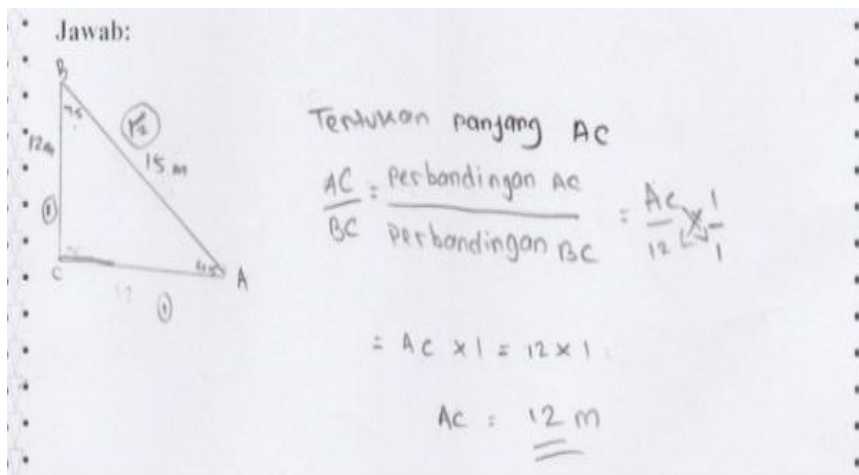 Jawab:
B
45
√2
12m
15 m
1
C
45
A
12
1
Tentukan panjang AC
AC/BC = perbandingan AC/perbandingan BC = AC/12 × 1/1
= AC × 1 = 12 × 1
AC = 12 m